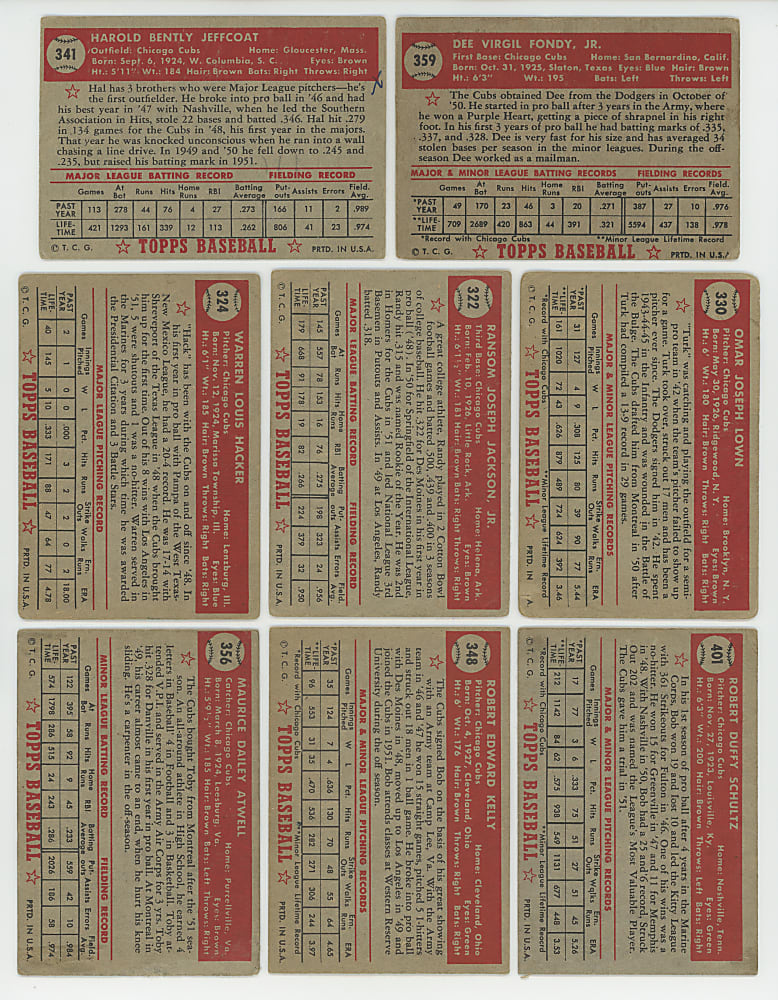 341
HAROLD BENTLY JEFFCOAT
Outfield: Chicago Cubs Home: Gloucester, Mass.
Born: Sept. 6, 1924, W. Columbia, S. C. Eyes: Brown
Ht.: 5'11" Wt.: 184 Hair: Brown Bats: Right Throws: Right
Hal has 3 brothers who were Major League pitchers—he's
the first outfielder. He broke into pro ball in '46 and had
his best year in '47 with Nashville, when he led the Southern
Association in Hits, stole 22 bases and batted .346. Hal hit .279
in 134 games for the Cubs in '48, his first year in the majors.
That year he was knocked unconscious when he ran into a wall
chasing a line drive. In 1949 and '50 he fell down to .245 and
.235, but raised his batting mark in 1951.
MAJOR LEAGUE BATTING RECORD FIELDING RECORD
Games At Bat Runs Hits Home Runs RBI Batting Average Put-outs Assists Errors Field. Avg.
PAST YEAR 113 278 44 76 4 27 .273 166 11 2 .989
LIFE-TIME 421 1293 161 339 12 113 .262 806 41 23 .974
© T. C. G. TOPPS BASEBALL PRTD. IN U.S.A.
359
DEE VIRGIL FONDY, JR.
First Base: Chicago Cubs Home: San Bernardino, Calif.
Born: Oct. 31, 1925, Slaton, Texas Eyes: Blue Hair: Brown
Ht.: 6'3" Wt.: 195 Bats: Left Throws: Left
The Cubs obtained Dee from the Dodgers in October of
'50. He started in pro ball after 3 years in the Army, where
he won a Purple Heart, getting a piece of shrapnel in his right
foot. In his first 3 years of pro ball he had batting marks of .335,
.337, and .328. Dee is very fast for his size and has averaged 34
stolen bases per season in the minor leagues. During the off-
season Dee worked as a mailman.
MAJOR & MINOR LEAGUE BATTING RECORDS FIELDING RECORDS
Games At Bat Runs Hits Home Runs RBI Batting Average Put-outs Assists Errors Field. Avg.
*PAST YEAR 49 170 23 46 3 20 .271 387 27 10 .976
**LIFE-TIME 709 2689 420 863 44 391 .321 5594 437 138 .978
*Record with Chicago Cubs **Minor League Lifetime Record
© T. C. G. TOPPS BASEBALL PRTD. IN U.S.
324
WARREN LOUIS HACKER
Pitcher: Chicago Cubs Home: Lensburg, Ill.
Born: Nov. 12, 1924, Marissa Township, Ill. Eyes: Blue
Ht.: 6'1" Wt.: 185 Hair: Brown Throws: Right Bats: Right
"Hack" has been with the Cubs on and off since '48. In
his first year in pro ball with Pampa of the West Texas-
New Mexico League, he had a 20-4 record. He was 17-14 with
Shreveport of the Texas League in '48 when the Cubs brought
him up for the first time. Out of his 8 wins with Los Angeles in
'51, 5 were shutouts and 1 was a no-hitter. Warren served in
the Marines for 3 years during which time he was awarded
the Presidential Citation and 3 Battle Stars.
MAJOR LEAGUE PITCHING RECORD
Games Innings Pitched W L Pct. Hits Runs Strike Outs Walks Ern. Runs ERA
PAST YEAR 2 1 0 0 .000 3 2 2 0 2 18.00
LIFE-TIME 40 145 5 10 .333 171 88 47 64 77 4.78
© T. C. G. TOPPS BASEBALL PRTD. IN U.S.A.
322
RANSOM JOSEPH JACKSON, JR.
Third Base: Chicago Cubs Home: Helena, Ark.
Born: Feb. 10, 1926, Little Rock, Ark. Eyes: Brown
Ht.: 6'1½" Wt.: 181 Hair: Brown Bats: Right Throws: Right
A great college athlete, Randy played in 2 Cotton Bowl
football games and batted .500, .439 and .400 in 3 seasons
of college baseball. He hit .322 for Des Moines in his first year in
pro ball ('48). In '50 for Springfield of the International League,
Randy hit .315 and was named Rookie of the Year. He was 2nd
in Homers for the Cubs in '51 and led National League 3rd
Basemen in Putouts and Assists. In '49 at Los Angeles, Randy
batted .318.
MAJOR LEAGUE BATTING RECORD FIELDING RECORD
Games At Bat Runs Hits Home Runs RBI Batting Average Put-outs Assists Errors Field. Avg.
PAST YEAR 145 557 78 153 16 76 .275 198 323 24 .956
LIFE-TIME 179 668 91 178 19 82 .266 224 379 32 .950
© T. C. G. TOPPS BASEBALL PRTD. IN U.S.A.
330
OMAR JOSEPH LOWN
Pitcher: Chicago Cubs Home: Brooklyn, N. Y.
Born: May 30, 1926, Ridgewood, N. Y. Eyes: Brown
Ht.: 6' Wt.: 180 Hair: Brown Throws: Right Bats: Right
"Turk" was catching and playing the outfield for a semi-
pro team in '42 when the team's pitcher failed to show up
for a game. Turk took over, struck out 17 men and has been a
pitcher ever since. The Dodgers signed him in '42. He spent
1943-4-5 in the Infantry and was wounded in the Battle of
the Bulge. The Cubs drafted him from Montreal in '50 after
Turk had compiled a 13-9 record in 29 games.
MAJOR & MINOR LEAGUE PITCHING RECORDS
Games Innings Pitched W L Pct. Hits Runs Strike Outs Walks Ern. Runs ERA
*PAST YEAR 31 127 4 9 .308 125 80 39 90 77 5.44
**LIFE-TIME 161 1020 72 43 .626 877 489 724 624 392 3.46
*Record with Chicago Cubs **Minor League Lifetime Record
© T. C. G. TOPPS BASEBALL PRTD. IN A.
356
MAURICE DAILEY ATWELL
Catcher: Chicago Cubs Home: Purcellville, Va.
Born: March 8, 1924, Leesburg, Va. Eyes: Brown
Ht.: 5'9½" Wt.: 185 Hair: Brown Bats: Left Throws: Right
The Cubs bought Toby from Montreal after the '51 sea-
son. An all-around athlete in High School, he earned 4
letters in Baseball, 4 in Football and 3 in Basketball. Toby at-
tended V.P.I. and served in the Army Air Corps for 3 yrs. Toby
hit .328 for Danville in his first year in pro ball. At Montreal in
'49, his career almost came to an end, when he hurt his knee
sliding. He's a carpenter in the off-season.
MINOR LEAGUE BATTING RECORD FIELDING RECORD
Games At Bat Runs Hits Home Runs RBI Batting Average Put-outs Assists Errors Field. Avg.
PAST YEAR 122 395 58 92 9 45 .233 559 42 10 .984
LIFE-TIME 574 1798 286 515 24 243 .286 2026 186 58 .974
© T. C. G. TOPPS BASEBALL PRTD. IN U.S.A.
348
ROBERT EDWARD KELLY
Pitcher: Chicago Cubs Home: Cleveland, Ohio
Born: Oct. 4, 1927, Cleveland, Ohio Eyes: Green
Ht.: 6' Wt.: 176 Hair: Brown Throws: Right Bats: Right
The Cubs signed Bob on the basis of his great showing
with an Army team at Camp Lee, Va. With the Army
team in '46 and '47 he won 15 straight games, pitched 5 1-hitters
and struck out 18 men in a ball game. He broke into pro ball
with Des Moines in '48, moved up to Los Angeles in '49 and
joined the Cubs in 1951. Bob attends classes at Western Reserve
University during the off season.
MAJOR & MINOR LEAGUE PITCHING RECORDS
Games Innings Pitched W L Pct. Hits Runs Strike Outs Walks Ern. Runs ERA
*PAST YEAR 35 124 7 4 .636 130 70 48 55 64 4.65
**LIFE-TIME 96 553 31 35 .470 536 282 271 306 244 3.97
*Record with Chicago Cubs **Minor League Lifetime Record
© T. C. G. TOPPS BASEBALL PRTD. IN U.S.A.
401
ROBERT DUFFY SCHULTZ
Pitcher: Chicago Cubs Home: Nashville, Tenn.
Born: Nov. 27, 1923, Louisville, Ky. Eyes: Green
Ht.: 6'3" Wt.: 200 Hair: Brown Throws: Left Bats: Right
In his 1st season of pro ball after 4 years in the Marine
Corps, Bob won 19 and lost 3 and led the Kitty League
with 361 Strikeouts for Fulton in '46. One of his wins was a
no-hitter. He won 15 for Greenville in '47 and 11 for Memphis
in '48. With Nashville in '50, Bob had a 25 and 6 record, Struck
Out 202 and was named the League's Most Valuable Player.
The Cubs gave him a trial in '51.
MAJOR & MINOR LEAGUE PITCHING RECORDS
Games Innings Pitched W L Pct. Hits Runs Strike Outs Walks Ern. Runs ERA
*PAST YEAR 17 77 3 6 .333 75 51 27 51 45 5.26
**LIFE-TIME 212 1142 84 62 .575 938 549 1131 677 448 3.53
*Record with Chicago Cubs **Minor League Lifetime Record
© T. C. G. TOPPS BASEBALL PRTD. IN U.S.A.